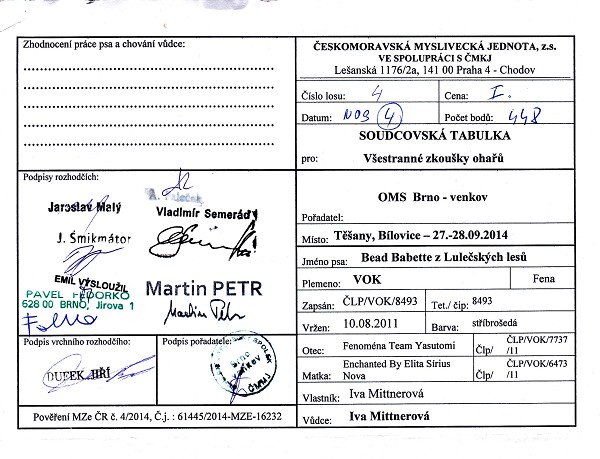 Zhodnocení práce psa a chování vůdce:
Podpisy rozhodčích:
Jaroslav Malý
Vladimír Semerád
J. Šmikmátor
EMIL VYSLOUŽIL
PAVEL FEDORKO
628 00 BRNO, Jírova 1
Martin PETR
Martin Petr
Podpis vrchního rozhodčího:
DUFEK JIŘÍ
Podpis pořadatele:
Brno
venkov
ČMMJ
Pověření MZe ČR č. 4/2014, Č.j. : 61445/2014-MZE-16232
ČESKOMORAVSKÁ MYSLIVECKÁ JEDNOTA, z.s.
VE SPOLUPRÁCI S ČMKJ
Lešanská 1176/2a, 141 00 Praha 4 - Chodov
Číslo losu: 4 Cena: I.
Datum: NO3 4 Počet bodů: 448
SOUDCOVSKÁ TABULKA
pro: Všestranné zkoušky ohařů
OMS Brno - venkov
Pořadatel:
Místo: Těšany, Bílovice – 27.-28.09.2014
Jméno psa: Bead Babette z Lulečských lesů
Plemeno: VOK Fena
Zapsán: ČLP/VOK/8493 Tet./ čip: 8493
Vržen: 10.08.2011 Barva: stříbrošedá
Otec: Fenoména Team Yasutomi Člp/ ČLP/VOK/7737
/11
Matka: Enchanted By Elita Sírius
Nova Člp/ ČLP/VOK/6473
/11
Vlastník: Iva Mittnerová
Vůdce: Iva Mittnerová